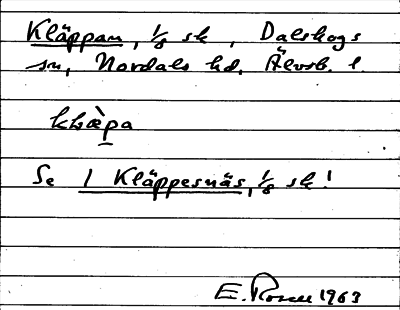 Kläppan, 1/8 sk, Dalskogs
sn, Nordals hd, Älvsb. l.
klæ̀pa
Se 1 Kläppesnäs, 1/8 sk!
E. Rosell 1963